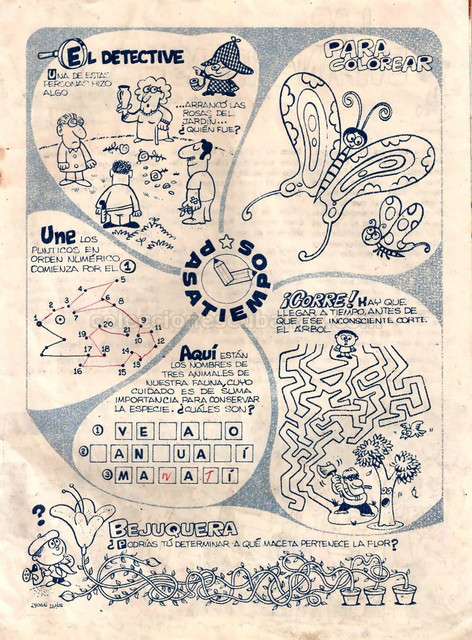 EL DETECTIVE
UNA DE ESTAS
PERSONAS HIZO
ALGO
...ARRANCÓ LAS
ROSAS DEL
JARDÍN...
¿QUIÉN FUE?
PARA
COLOREAR
UNE LOS
PUNTICOS EN
ORDEN NUMÉRICO
COMIENZA POR EL 1
1 2 3 4 5 6 7 8 9 10 11 12 13 14 15 16 17 18 19 20
PASATIEMPOS
¡CORRE! HAY QUE
LLEGAR A TIEMPO, ANTES DE
QUE ESE INCONSCIENTE CORTE
EL ÁRBOL.
AQUÍ ESTÁN
LOS NOMBRES DE
TRES ANIMALES DE
NUESTRA FAUNA, CUYO
CUIDADO ES DE SUMA
IMPORTANCIA PARA CONSERVAR
LA ESPECIE. ¿CUÁLES SON?
1 VE A O
2 AN UA Í
3 MANATÍ
?
BEJUQUERA
¿PODRÍAS TÚ DETERMINAR A QUÉ MACETA PERTENECE LA FLOR?
JOSE LUIS